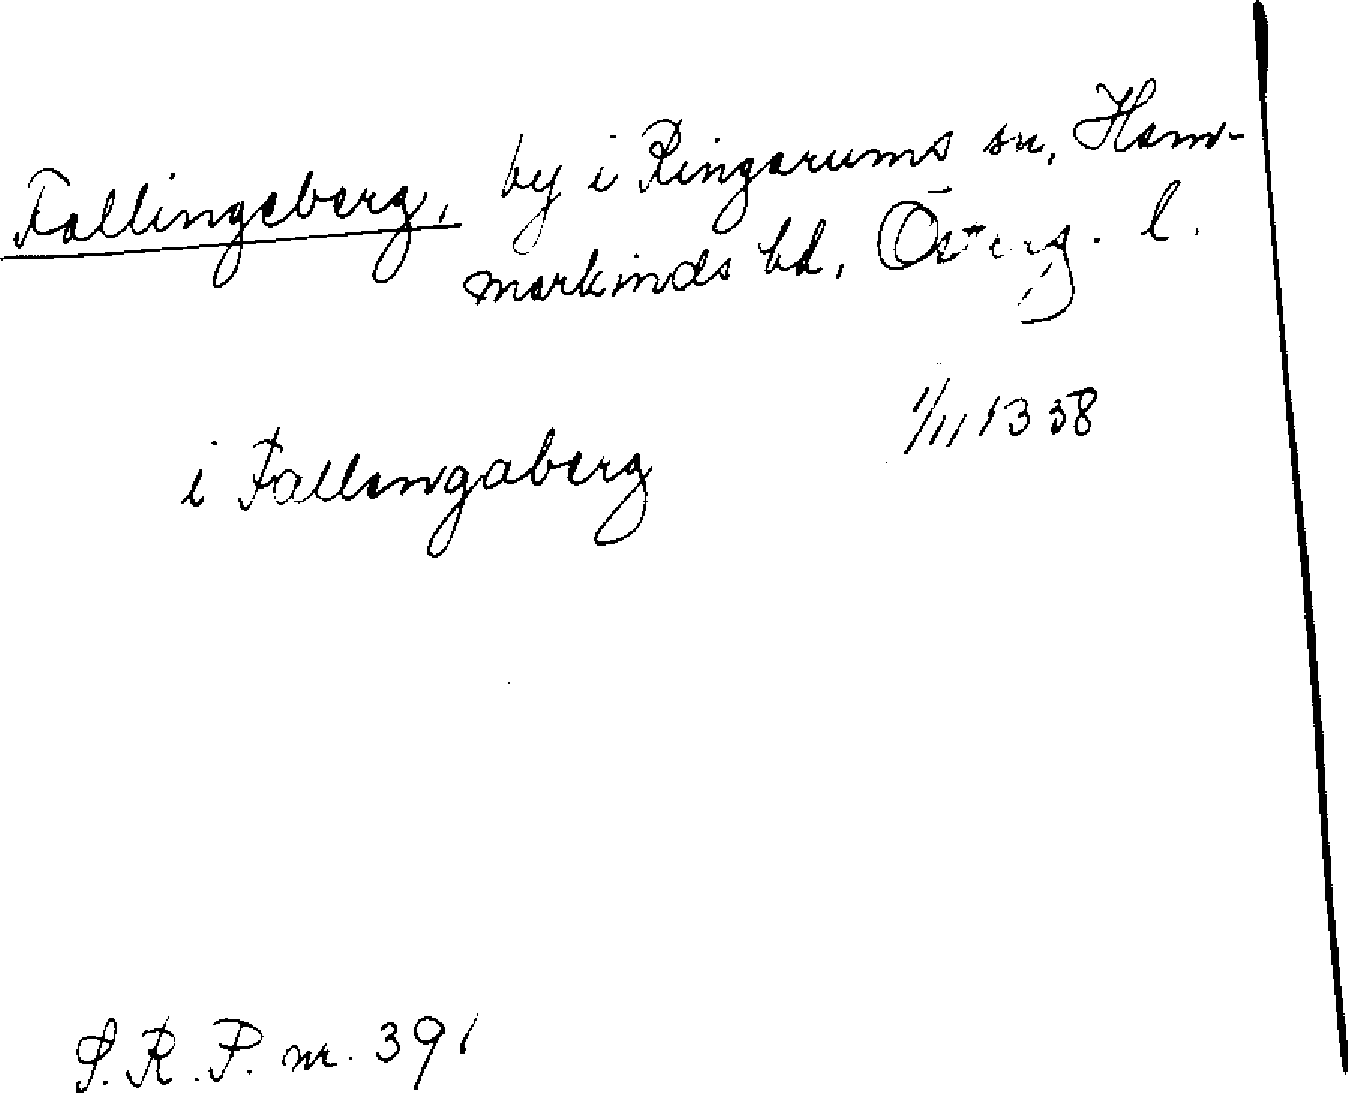 Fallingeberg, by i Ringarums sn, Ham-
markinds hd, Österg. l.
1/11 1338
i Fallingaberg
S. R. P. nr. 391